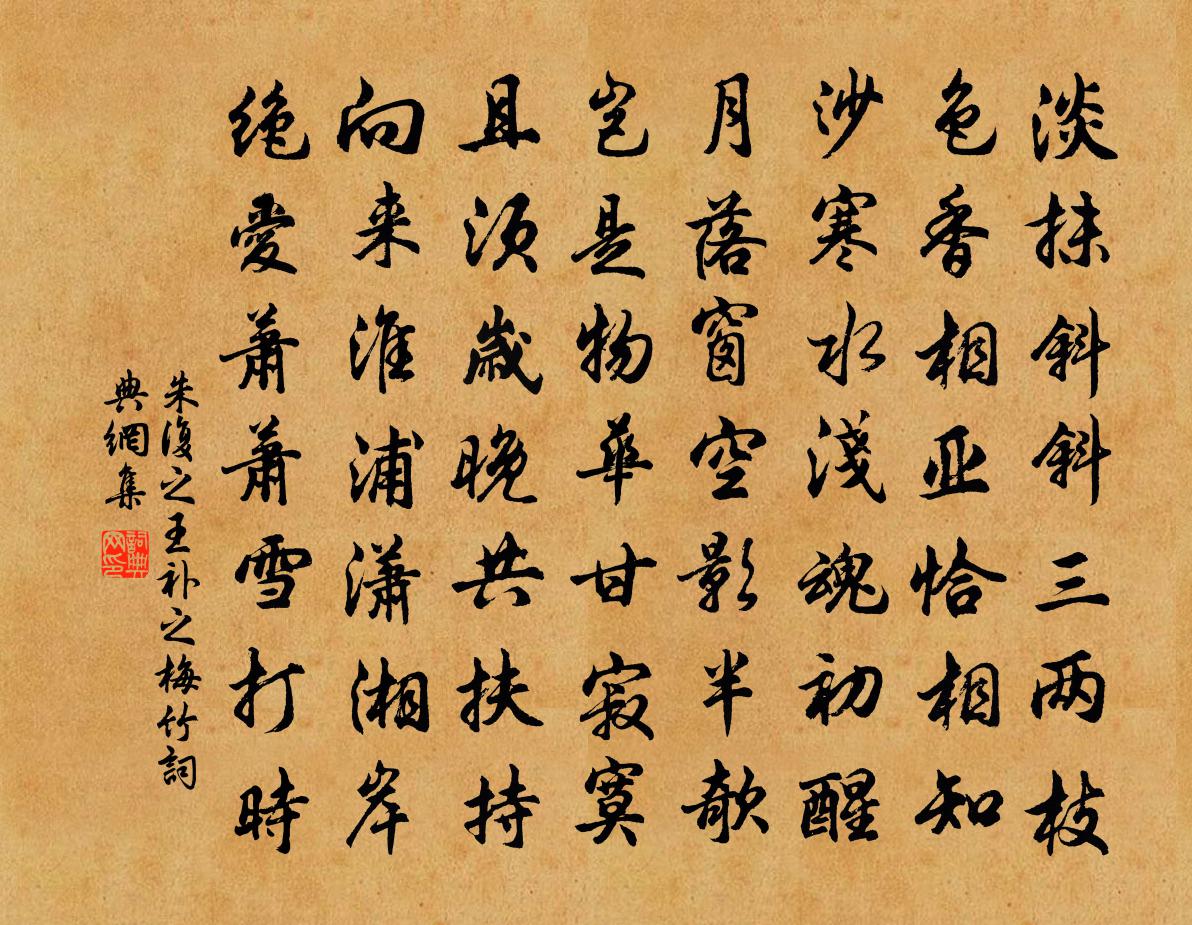 淡抹斜斜三两枝
色香相亚恰相知
沙寒水淺魂初醒
月落窗空影半欹
岂是物華甘寂寞
且须歲晚共扶持
向来淮浦潇湘岸
绝愛萧萧雪打時
朱復之王补之梅竹詞
典網集
詞典网印